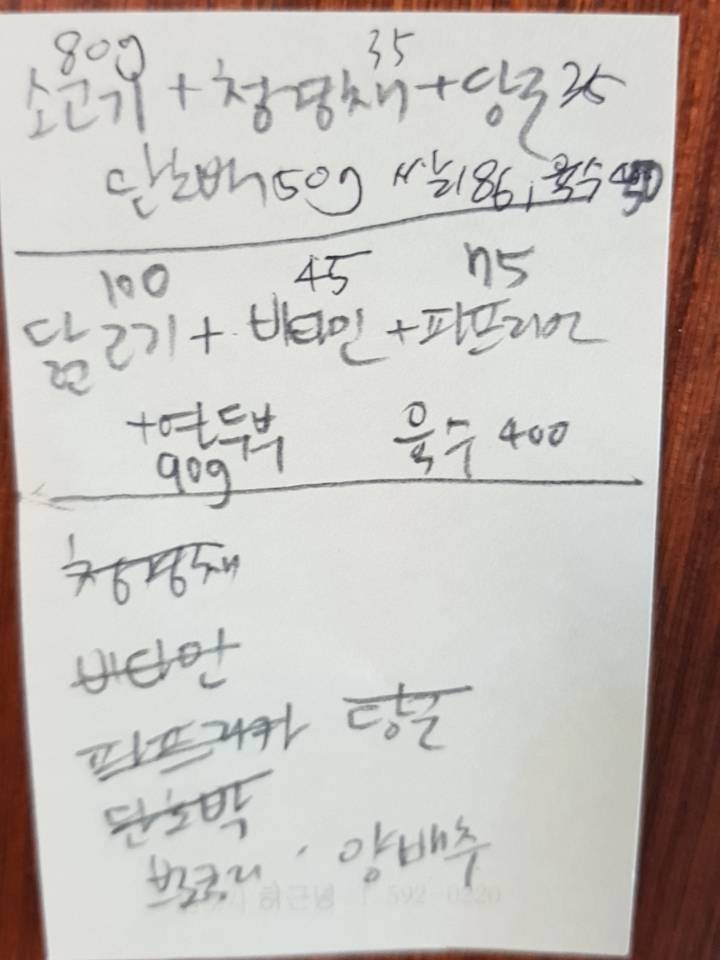 80g 35
소고기 + 청경채 + 당근 35
단호박 50g 쌀 186, 육수
100 45 75
닭고기 + 비타민 + 파프리카
+연두부 육수 400
90g
청경채
비타민
파프리카 당근
단호박
브로콜리 · 양배추
592-0220